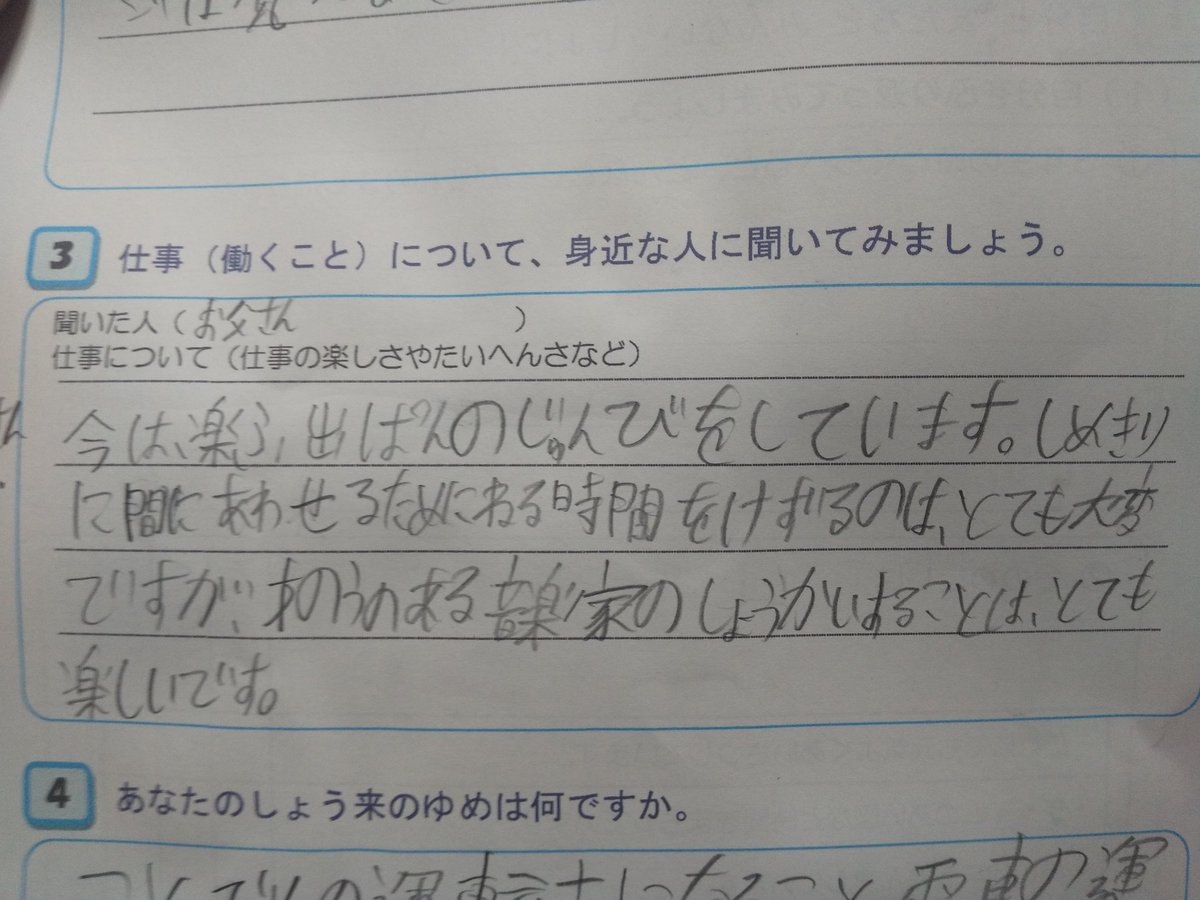 3 仕事（働くこと）について、身近な人に聞いてみましょう。
聞いた人（お父さん　　　）
仕事について（仕事の楽しさやたいへんさなど）
今は、楽ふ出ぱんのじゅんびをしています。しめきり
に間にあわせるためにねる時間をけずるのは、とても大変
ですが、才のうのある音楽家のしょうかいすることは、とても
楽しいです。
4 あなたのしょう来のゆめは何ですか。